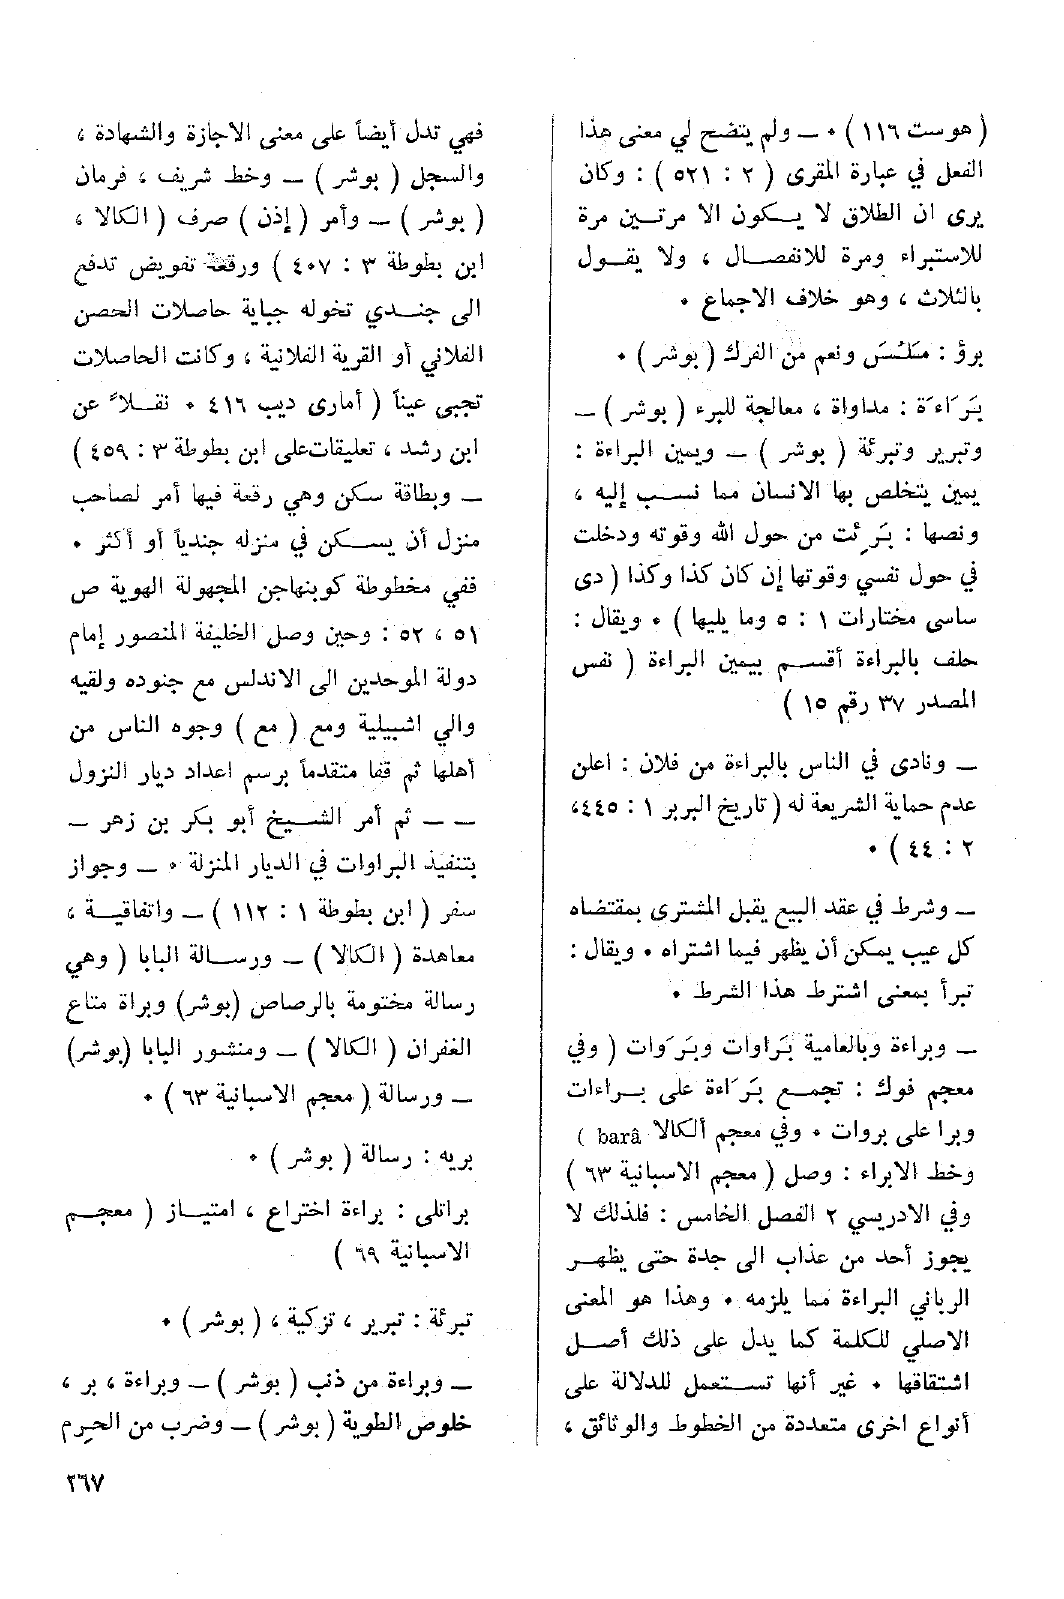 ( هوست ١١٦ ) • ــ ولم يتضح لي معنى هذا
الفعل في عبارة المقرى ( ٢ : ٥٢١ ) : وكان
يرى ان الطلاق لا يــكون الا مرتــين مرة
للاستبراء ومرة للانفصــال ، ولا يقــول
بالثلاث ، وهو خلاف الاجماع •
برؤ : مَلَسَ ونعم من الفرك ( بوشر ) •
بَرَاءَة : مداواة ، معالجة للبرء ( بوشر ) ــ
وتبرير وتبرئة ( بوشر ) ــ ويمين البراءة :
يمين يتخلص بها الانسان مما نســب إليه ،
ونصها : بَرِئت من حول الله وقوته ودخلت
في حول نفسي وقوتها إن كان كذا وكذا ( دى
ساسى مختارات ١ : ٥ وما يليها ) • ويقال :
حلف بالبراءة أقســم بيمين البراءة ( نفس
المصدر ٣٧ رقم ١٥ )
ــ ونادى في الناس بالبراءة من فلان : اعلن
عدم حماية الشريعة له ( تاريخ البربر ١ : ٤٤٥،
٢ : ٤٤ ) •
ــ وشرط في عقد البيع يقبل المشترى بمقتضاه
كل عيب يمكن أن يظهر فيما اشتراه • ويقال :
تبرأ بمعنى اشترط هذا الشرط •
ــ وبراءة وبالعامية بَراوات وبَرَوات ( وفي
معجم فوك : تجمــع بَرَاءة على بــراءات
وبرا على بروات • وفي معجم ألكالا barâ )
وخط الابراء : وصل ( معجم الاسبانية ٦٣ )
وفي الادريسي ٢ الفصل الخامس : فلذلك لا
يجوز أحد من عذاب الى جدة حتى يظهــر
الرباني البراءة مما يلزمه • وهذا هو المعنى
الاصلي للكلمة كما يدل على ذلك أصــل
اشتقاقها • غير أنها تســتعمل للدلالة على
أنواع اخرى متعددة من الخطوط والوثائق ،
فهي تدل أيضاً على معنى الاجازة والشهادة ،
والسجل ( بوشر ) ــ وخط شريف ، فرمان
( بوشر ) ــ وأمر ( إذن ) صرف ( الكالا ،
ابن بطوطة ٣ : ٤٠٧ ) ورقعة تفويض تدفع
الى جنــدي تخوله جباية حاصلات الحصن
الفلاني أو القرية الفلانية ، وكانت الحاصلات
تجبى عيناً ( أمارى ديب ٤١٦ • نقــلاً عن
ابن رشد ، تعليقات على ابن بطوطة ٣ : ٤٥٩ )
ــ وبطاقة سكن وهي رقعة فيها أمر لصاحب
منزل أن يســكن في منزله جندياً أو أكثر •
ففي مخطوطة كوبنهاجن المجهولة الهوية ص
٥١ ، ٥٢ : وحين وصل الخليفة المنصور إمام
دولة الموحدين الى الاندلس مع جنوده ولقيه
والي اشبيلية ومع ( مع ) وجوه الناس من
أهلها ثم قفا متقدماً برسم اعداد ديار النزول
ــ ــ ثم أمر الشــيخ أبو بكر بن زهر ــ
بتنفيذ البراوات في الديار المنزلة • ــ وجواز
سفر ( ابن بطوطة ١ : ١١٢ ) ــ واتفاقيــة ،
معاهدة ( الكالا ) ــ ورســالة البابا ( وهي
رسالة مختومة بالرصاص (بوشر) وبراة متاع
الغفران ( الكالا ) ــ ومنشور البابا (بوشر)
ــ ورسالة ( معجم الاسبانية ٦٣ ) •
بريه : رسالة ( بوشر ) •
براتلى : براءة اختراع ، امتيــاز ( معجــم
الاسبانية ٦٩ )
تبرئة : تبرير ، تزكية ، ( بوشر ) •
ــ وبراءة من ذنب ( بوشر ) ــ وبراءة ، بر ،
خلوص الطوية ( بوشر ) ــ وضرب من الحرم
٢٦٧